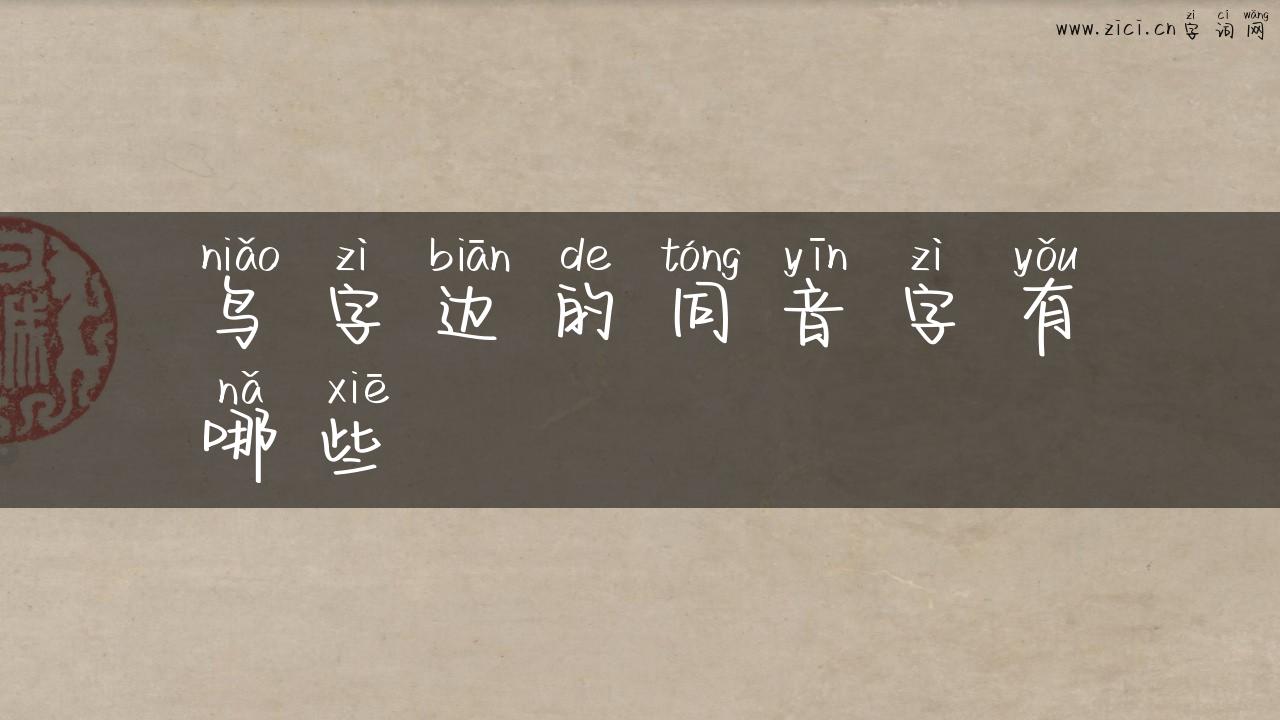 www.zici.cn zì cí wǎng
字词网
niǎo zì biān de tóng yīn zì yǒu
鸟字边的同音字有
nǎ xiē
哪些